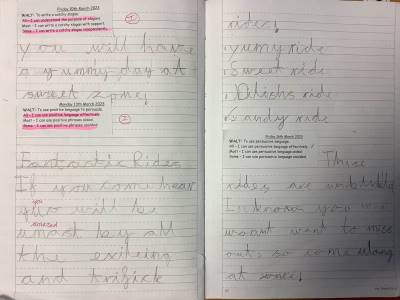 Friday 10th March 2023
WALT: To write a catchy slogan.
All – I can understand the purpose of slogans.
Most – I can write a catchy slogan with support.
Some – I can write a catchy slogan independently.
1
you will have
a yummy day at
sweet zone!
Monday 13th March 2023
WALT: To use positive language to persuade.
All – I can use positive language effectively.
Most – I can use positive phrases
Some – I can use positive phrases
2
Fantastic Rides
If you come hear
you
you will be
amazed
umast by all
the exiteing
and trifick
rides!
yumy ride
Sweet ride
ride
Candy ride
Friday 2023
WALT: To use persuasive language.
All – I can use persuasive language effectively.
Most – I can use persuasive language
Some – I can use persuasive language
These
rides are
I know you
want to miss
out so come along
at once!